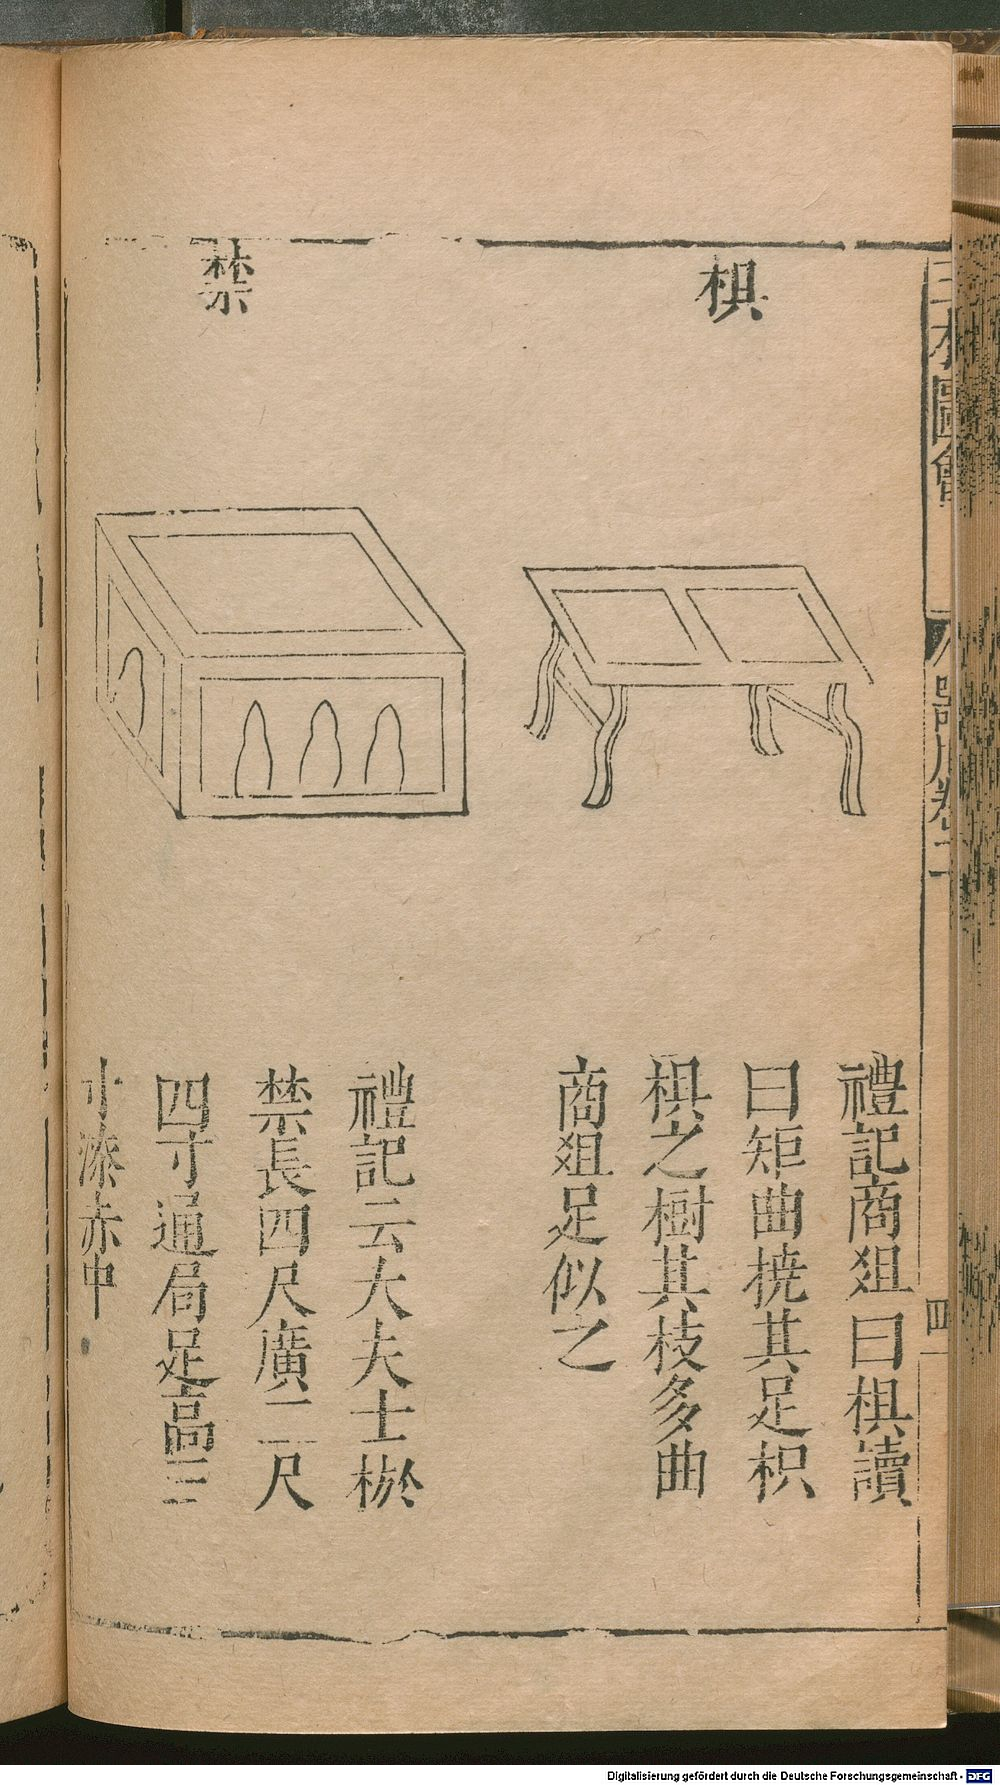 三才圖會
器用卷二
四
椇
禮記商俎曰椇讀
曰矩曲撓其足枳
椇之樹其枝多曲
商俎足似之
禁
禮記云大夫士棜
禁長四尺廣二尺
四寸通局足高三
寸漆赤中
Digitalisierung gefördert durch die Deutsche Forschungsgemeinschaft - DFG